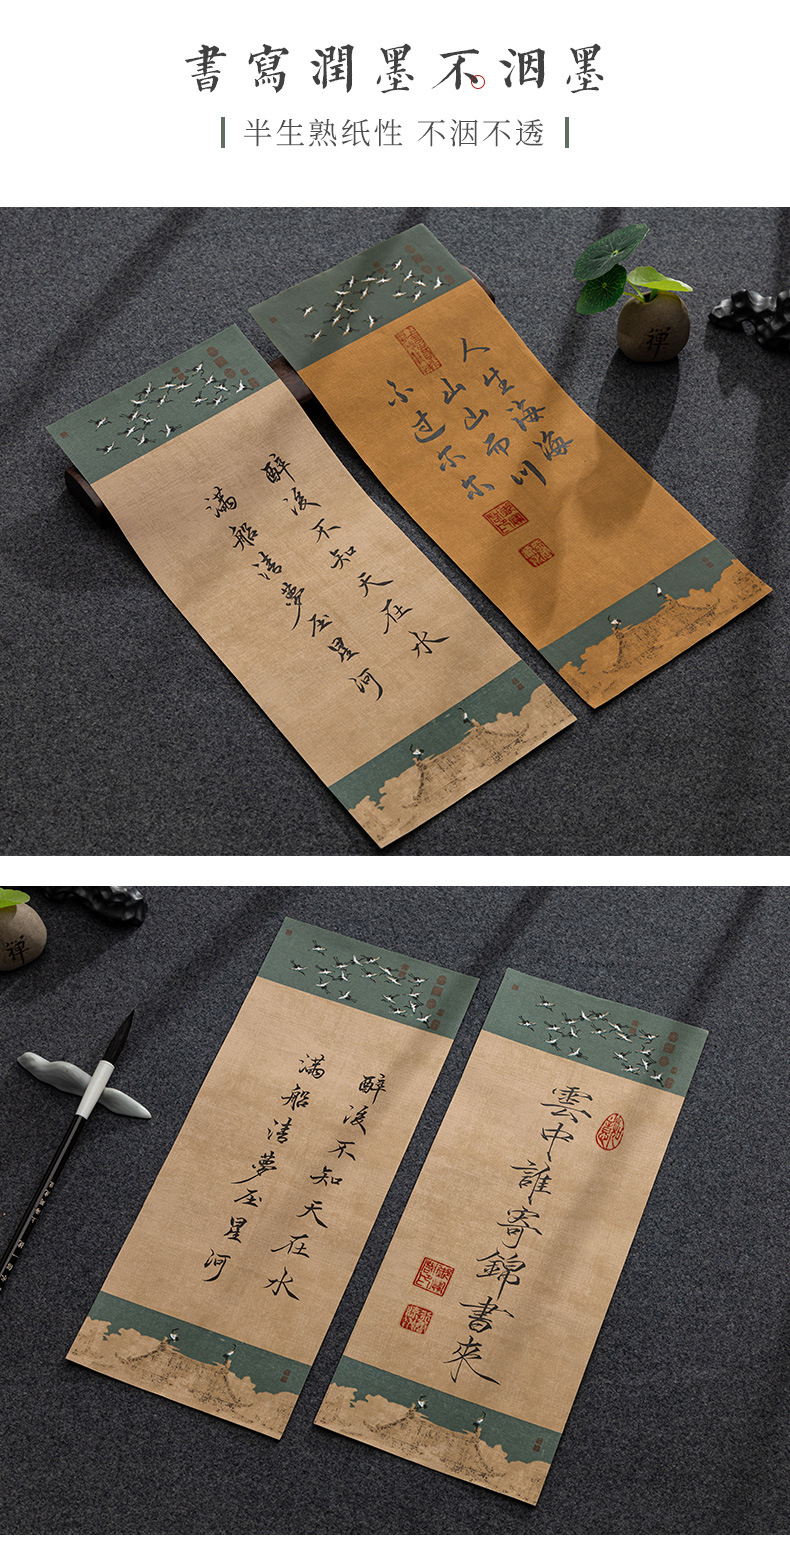 書寫潤墨不洇墨
半生熟纸性 不洇不透
人生海海
山山而川
不过尔尔
禪
醉後不知天在水
满船清夢压星河
禪
醉後不知天在水
满船清夢压星河
雲中誰寄錦書來